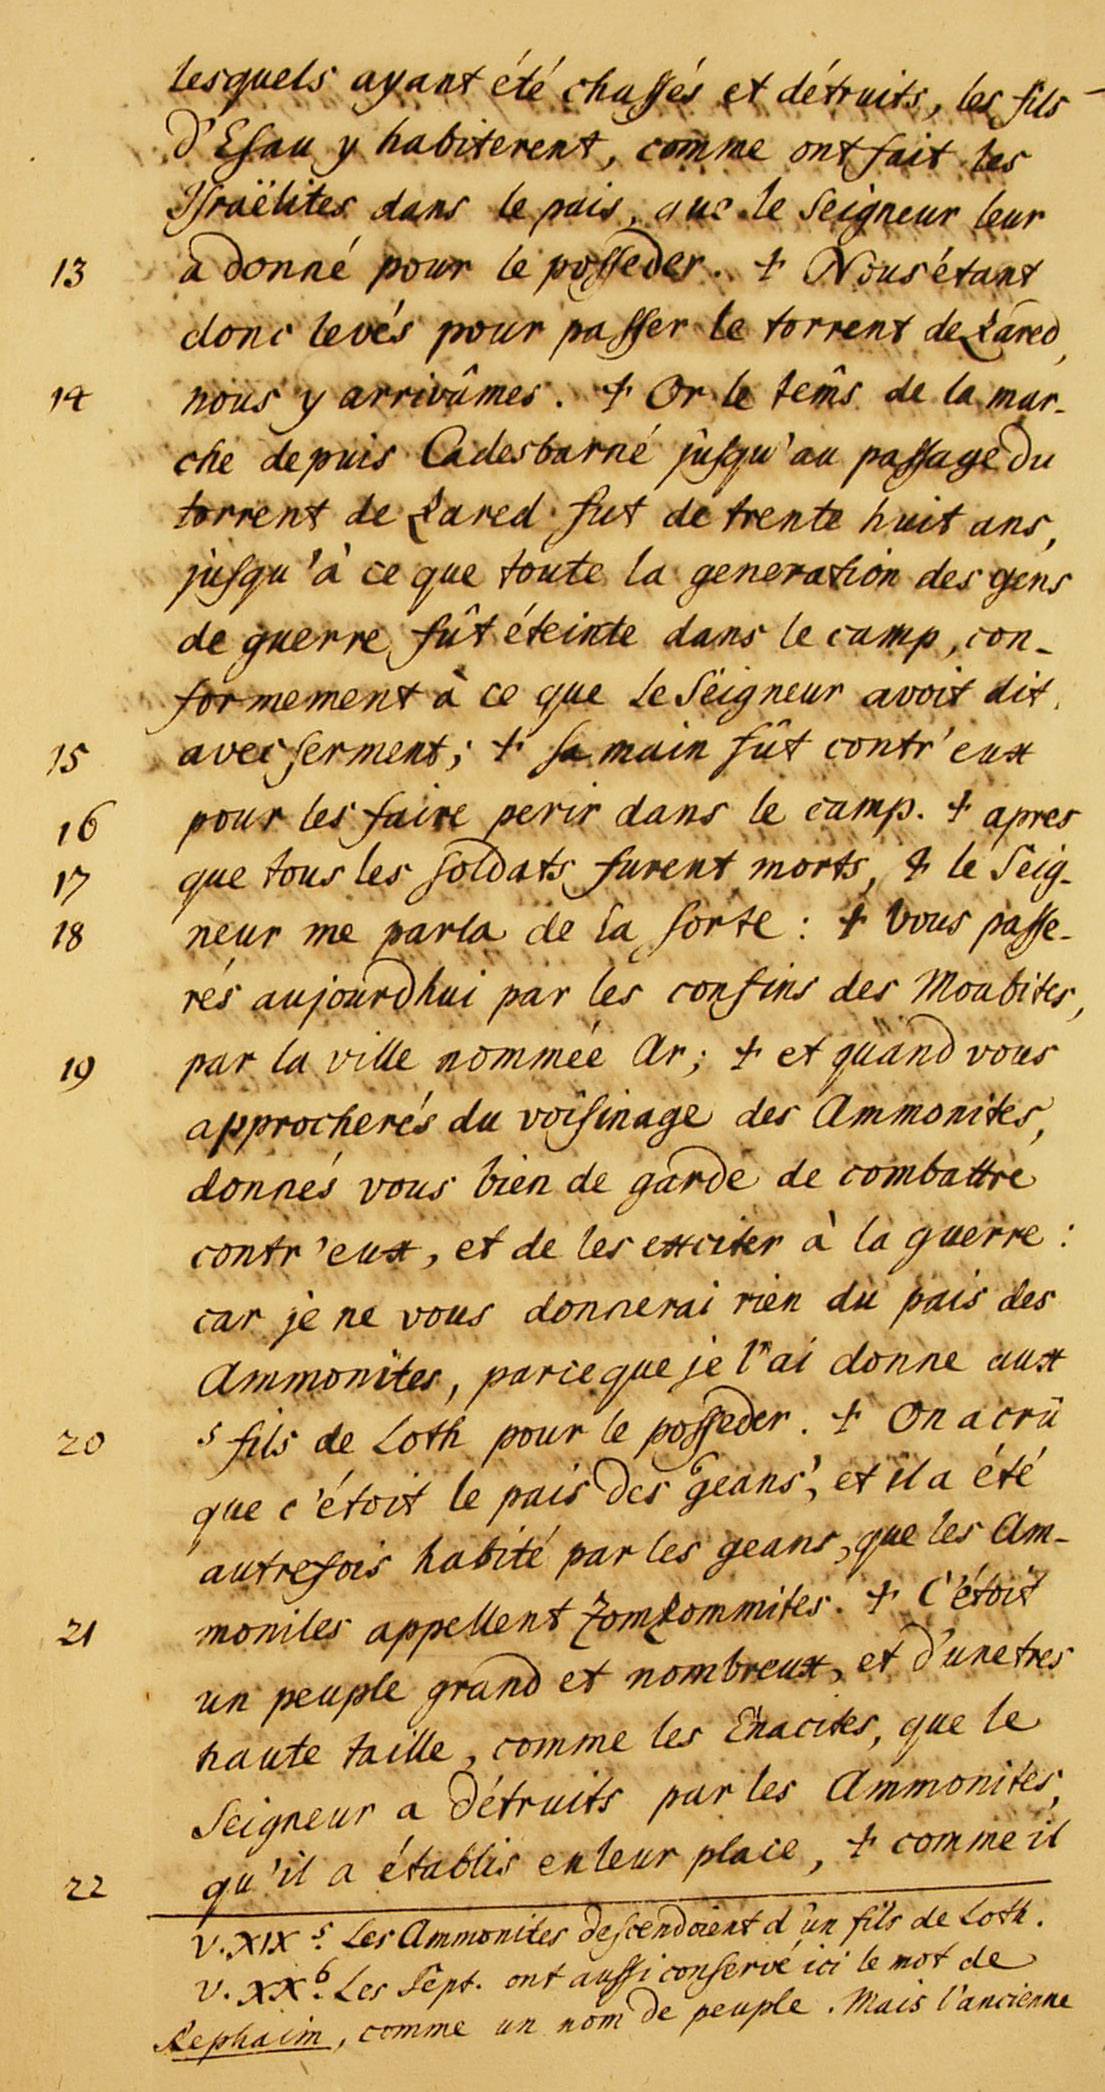 lesquels ayant été chassés et détruits, les fils
d'Esau y habiterent, comme ont fait les
Israëlites dans le païs, que le Seigneur leur
13 a donné pour le posseder. + Nous étant
donc levés pour passer le torrent de Zared,
14 nous y arrivâmes. + Or le tem̂s de la mar-
che depuis Cadesbarné jusqu'au passage du
torrent de Zared fut de trente huit ans,
jusqu'à ce que toute la generation des gens
de guerre fût éteinte dans le camp, con-
formement à ce que le Seigneur avoit dit
15 avec serment; + sa main fût contr'eux
16 pour les faire perir dans le camp. + apres
17 que tous les soldats furent morts, + le Seig-
18 neur me parla de la sorte : + Vous passe-
rés aujourdhui par les confins des Moabites,
19 par la ville nommée Ar; + et quand vous
approcherés du voisinage des Ammonites,
donnés vous bien de garde de combattre
contr'eux, et de les exciter à la guerre :
car je ne vous donnerai rien du païs des
Ammonites, parceque je l'ai donne aux
20 5 fils de Loth pour le posseder. + On a crû
que c'étoit le païs des 6 geans, et il a été
autrefois habité par les geans, que les Am-
21 monites appellent Zomzommites. + C'étoit
un peuple grand et nombreux, et d'une tres
haute taille, comme les Enacites, que le
Seigneur a détruits par les Ammonites,
22 qu'il a établis en leur place, + comme il
V. XIX 5. Les Ammonites descendoient d'un fils de Loth.
V. XX 6. Les Sept. ont aussi conservé ici le mot de
Rephaim, comme un nom de peuple. Mais l'ancienne